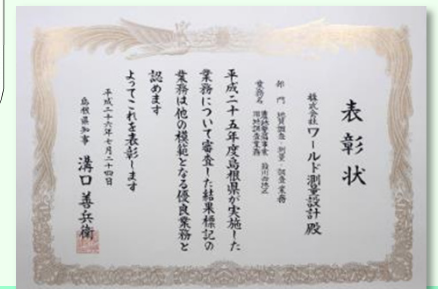 表彰状
株式会社ワールド測量設計殿
部門 地質調査・測量・調査業務
業務名
用地調査業務
平成二十五年度島根県が実施した
業務について審査した結果標記の
業務は他の模範となる優良業務と
認めます
よってこれを表彰します
平成二十六年七月二十四日
島根県知事 溝口善兵衛